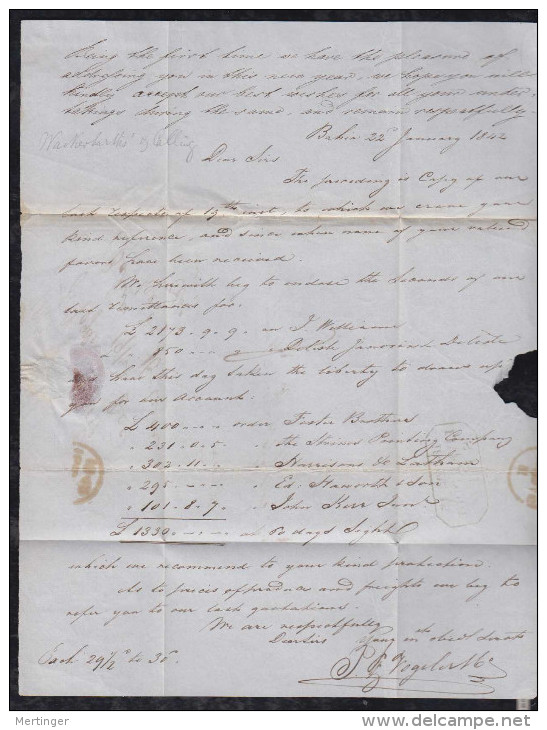 Being the first time we have the pleasure of
addressing you in this new year, we hope you will
kindly accept our best wishes for all your under-
takings during the same, and remain respectfully
Bahia 22d January 1842
Dear Sirs
The preceding is Copy of our
last respects of 13th inst, to which we crave your
kind reference, and since when none of your valued
favors have been received.
We herewith beg to enclose the Seconds of our
last remittances for:
£ 2173. 9. 9. on J. Williams
" 850 " "
we have this day taken the liberty to draw up
you for our Account:
£ 400 " " order Foster Brothers
" 231. 0. 5. " the Printing Company
" 302. 11. " " Harrisons & Latham
" 295 " " " Ed. Haworth & Son
" 101. 8. 7. " John Kerr Junr
£ 1330. " " at 60 days Sight
which we recommend to your kind protection.
As to prices of produce and freights we beg to
refer you to our last quotations.
We are respectfully
Dear Sirs Your obedt Servts
Vogeler & Co
29 1/2 to 30
Mertinger
www.delcampe.net